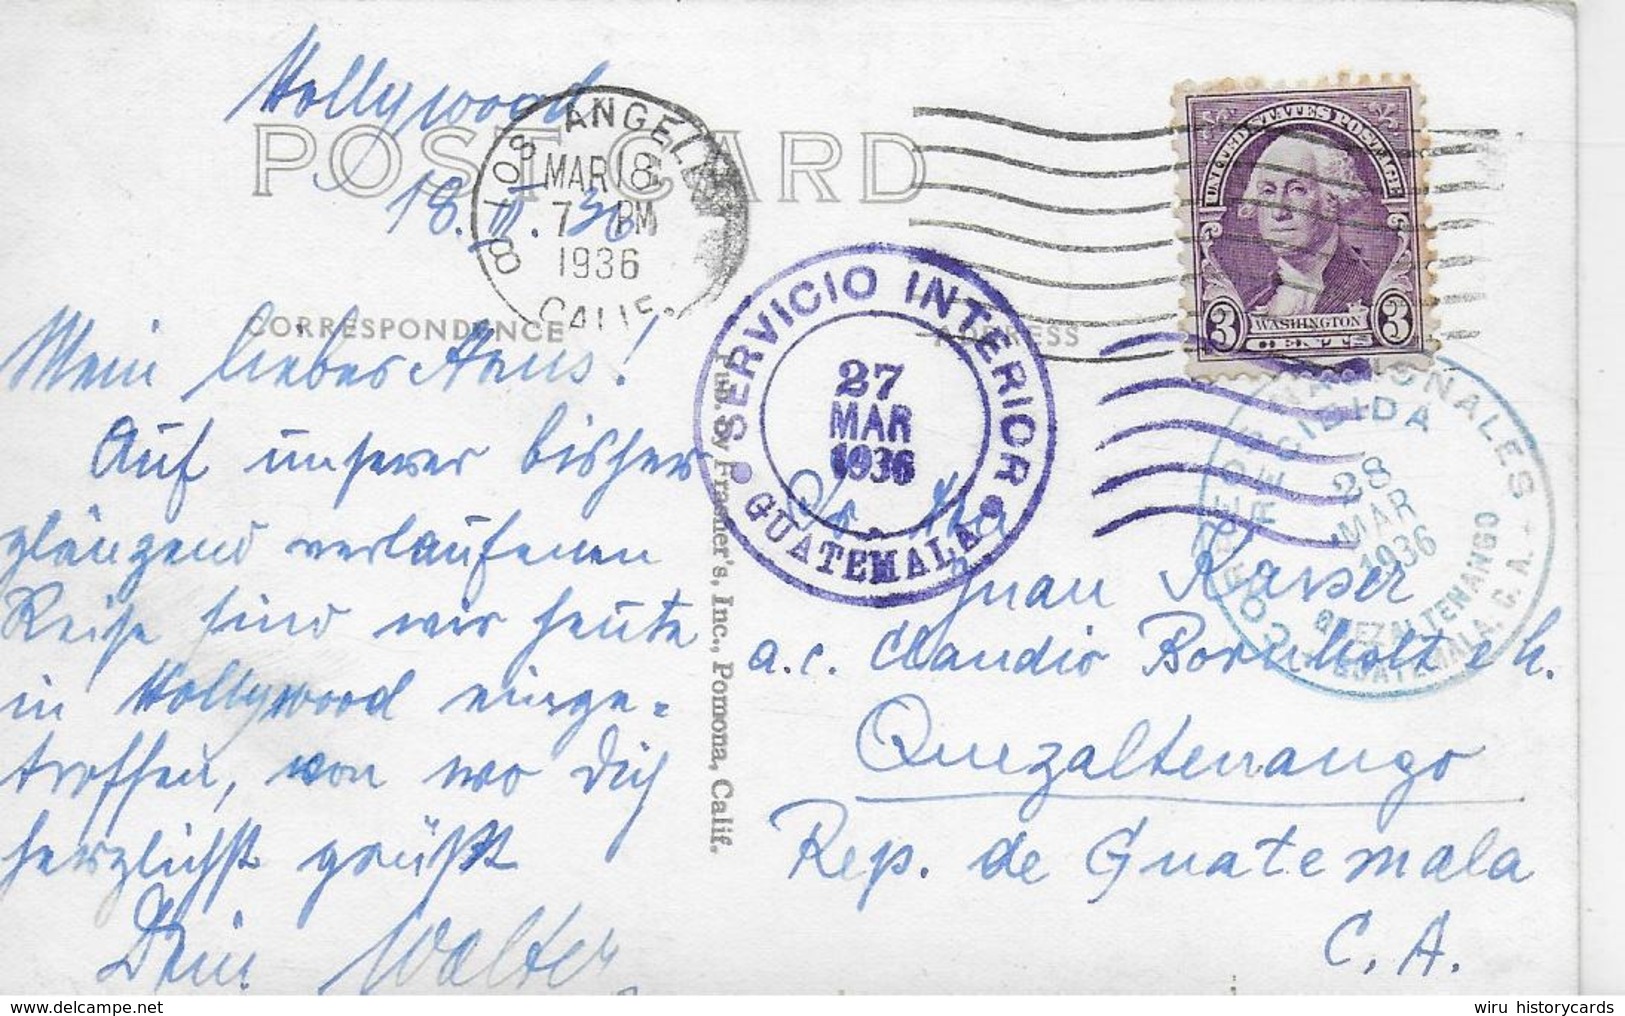 Hollywood
18. III. 36
POST CARD
CORRESPONDENCE
ADDRESS
Mein lieber Hans!
Auf unserer bisher
glänzend verlaufenen
Reise sind wir heute
in Hollywood einge=
troffen, von wo Dich
herzlichst grüßt
Dein Walter
LOS ANGELES
MAR 18
7 PM
1936
CALIF.
8
UNITED STATES POSTAGE
3 WASHINGTON 3
CENTS
SERVICIO INTERIOR
27
MAR
1936
GUATEMALA
CORREOS NACIONALES
RECIBIDA
28
MAR
1936
QUEZALTENANGO
GUATEMALA, C. A.
Pub. by Frasher's, Inc., Pomona, Calif.
Juan Kaiser
a.c. Claudio Bornholt e h.
Quezaltenango
Rep. de Guatemala
C. A.
wiru historycards